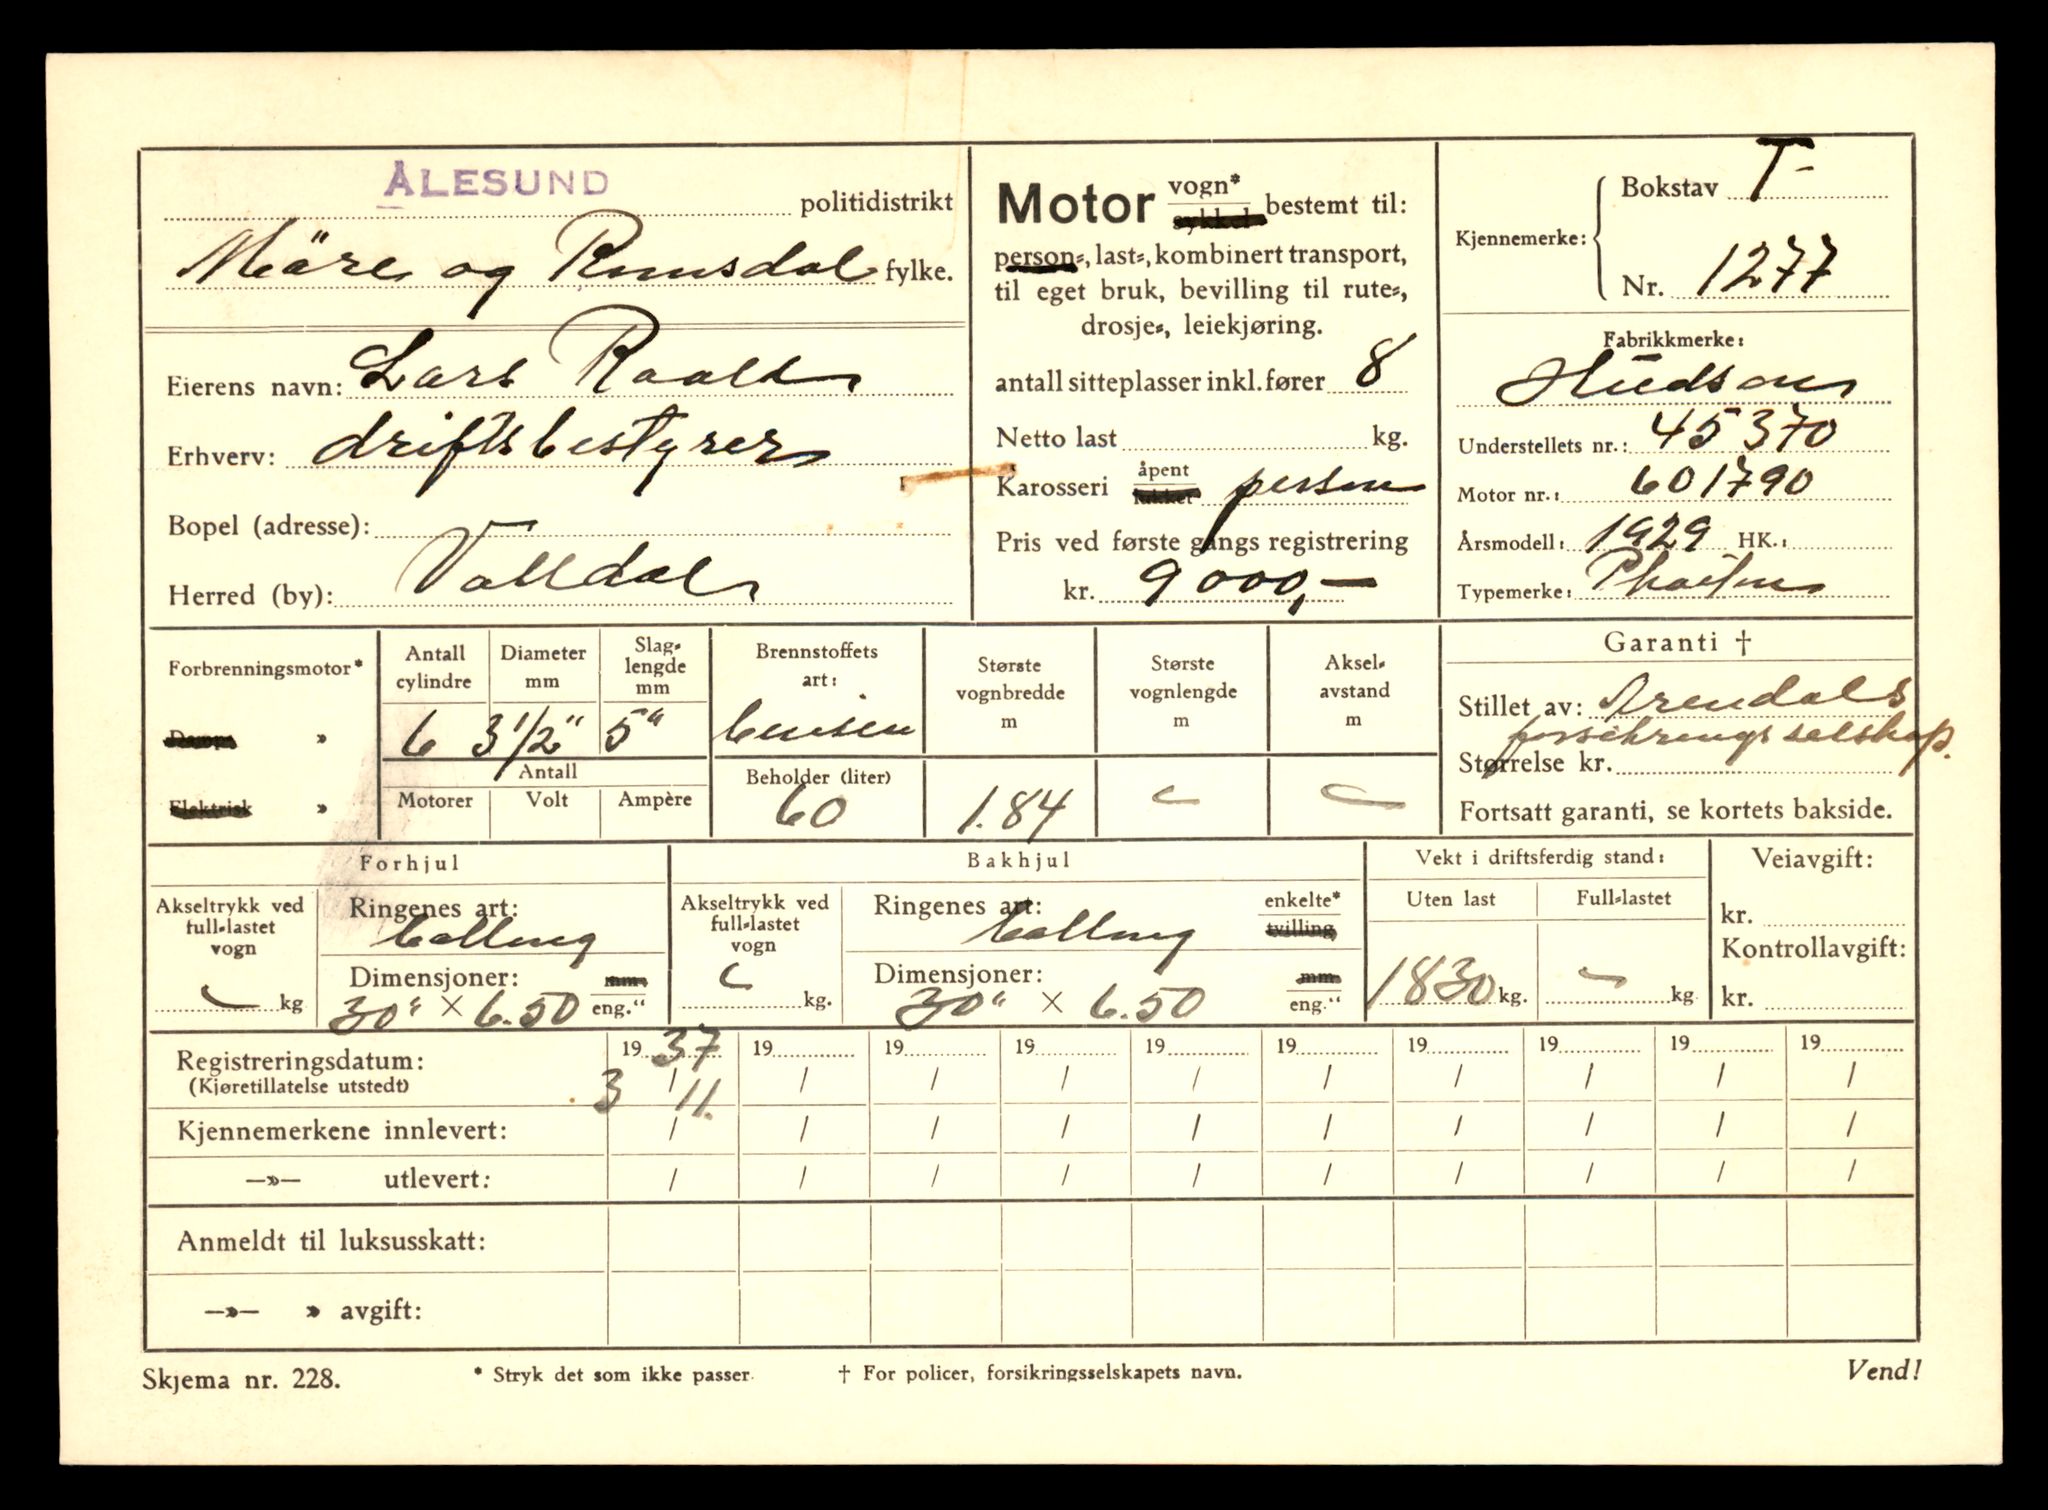 ÅLESUND politidistrikt
Möre og Rumsdal fylke.
Eierens navn: Lars Raald
Erhverv: driftsbestyrer
Bopel (adresse):
Herred (by): Valldal
Motor vogn* sykkel bestemt til:
person=, last=, kombinert transport,
til eget bruk, bevilling til rute=,
drosje=, leiekjøring.
antall sitteplasser inkl. fører 8
Netto last kg.
Karosseri åpent lukket person
Pris ved første gangs registrering
kr. 9000,—
Kjennemerke: Bokstav T-
Nr. 1277
Fabrikkmerke:
Hudson
Understellets nr.: 45370
Motor nr.: 601790
Årsmodell: 1929 HK.:
Typemerke: Phaeton
Forbrenningsmotor*
Damp= »
Elektrisk »
Antall cylindre
Diameter mm
Slag=lengde mm
6 3 1/2" 5"
Antall
Motorer Volt Ampère
Brennstoffets art:
bensin
Beholder (liter)
60
Største vognbredde m
1.84
Største vognlengde m
Aksel=avstand m
Garanti †
Stillet av: Arendals
forsikringsselskap.
Størrelse kr.
Fortsatt garanti, se kortets bakside.
Forhjul
Akseltrykk ved full=lastet vogn
kg
Ringenes art:
ballong
Dimensjoner: mm
30" × 6.50 eng."
Bakhjul
Akseltrykk ved full=lastet vogn
kg.
Ringenes art: enkelte* tvilling
ballong
Dimensjoner: mm
30" × 6.50 eng."
Vekt i driftsferdig stand:
Uten last Full=lastet
1830 kg. kg
Veiavgift:
kr.
Kontrollavgift:
kr.
Registreringsdatum: 19 37 19 19 19 19 19 19 19 19 19
(Kjøretillatelse utstedt) 3 / 11. / / / / / / / / /
Kjennemerkene innlevert: / / / / / / / / / /
—»— utlevert: / / / / / / / / / /
Anmeldt til luksusskatt:
—»— » avgift:
Skjema nr. 228. * Stryk det som ikke passer. † For policer, forsikringsselskapets navn. Vend!